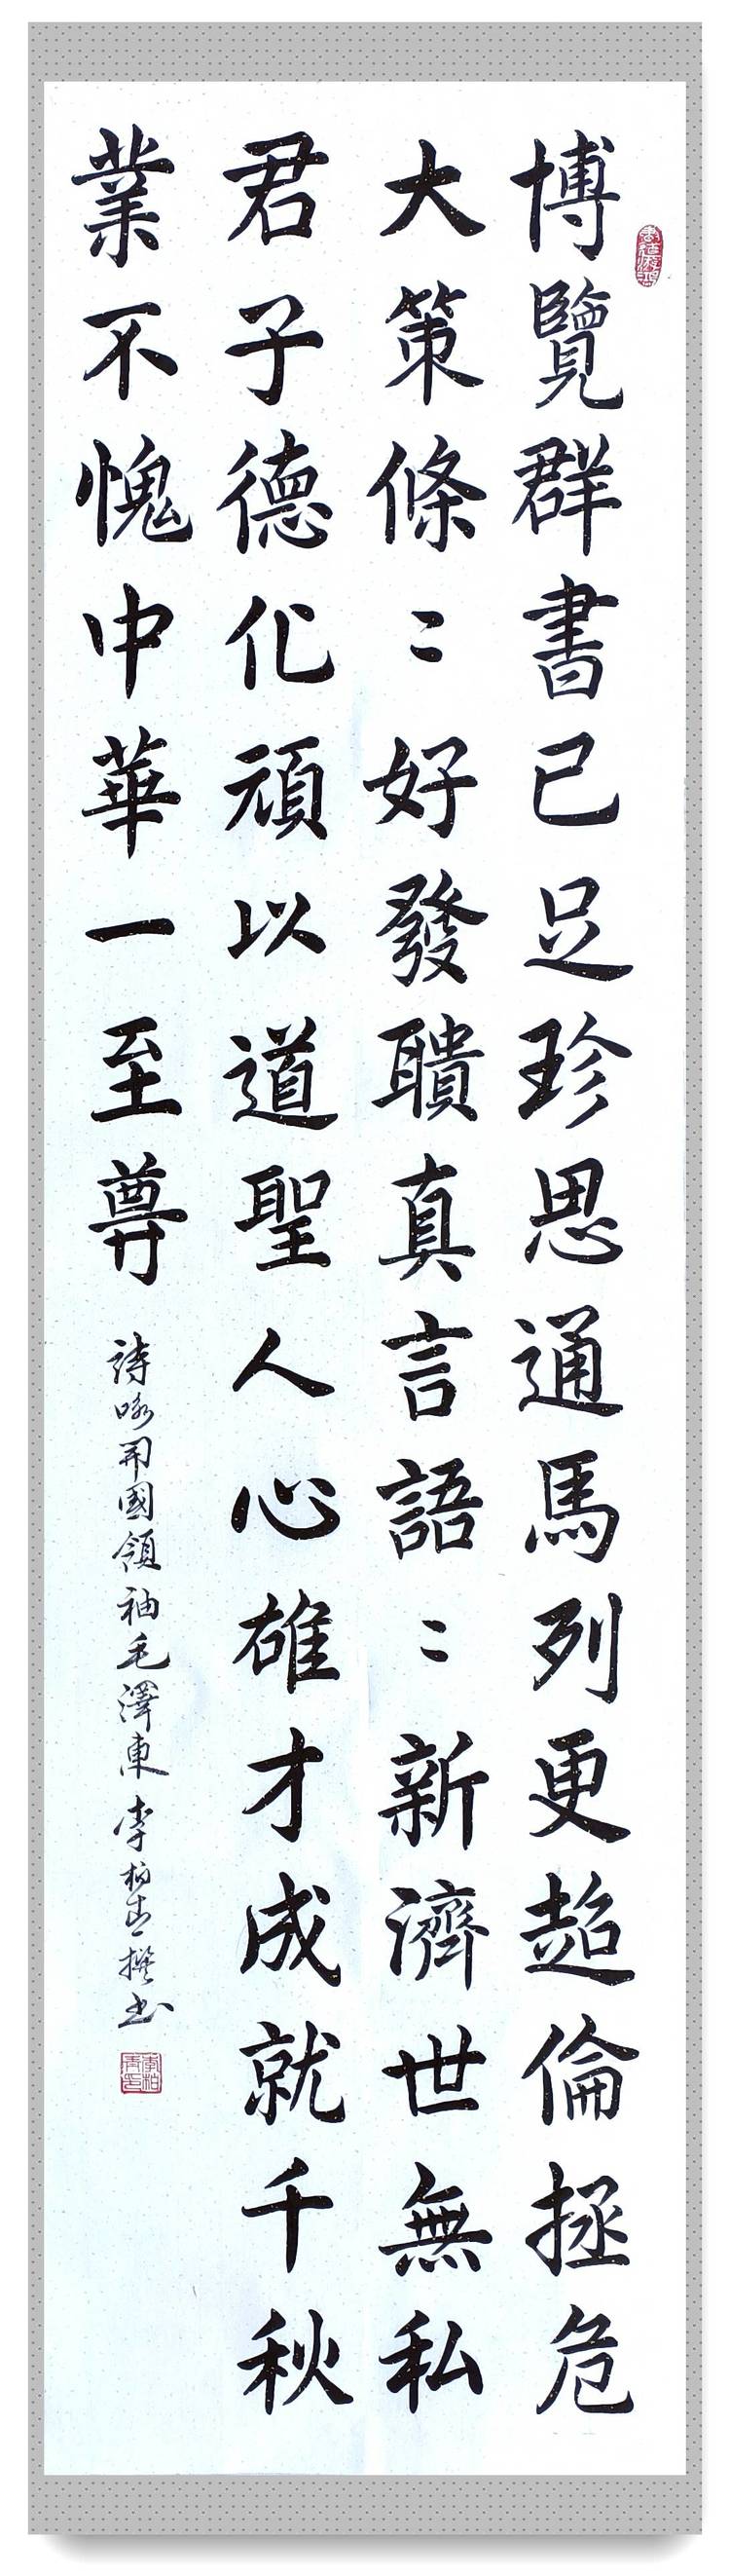 博覽群書已足珍思通馬列更超倫拯危
大策條〻好發聵真言語〻新濟世無私
君子德化頑以道聖人心雄才成就千秋
業不愧中華一至尊
詩咏開國領袖毛澤東李柏青撰书
李柏青印